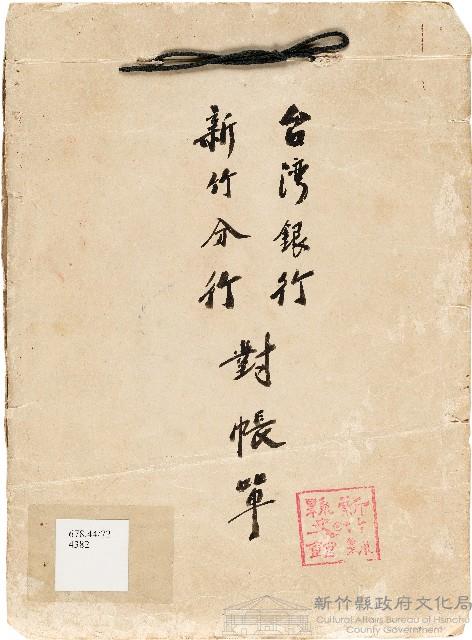 台湾銀行
新竹分行
對帳單
678.44/72
4382
新竹縣政府文化局
Cultural Affairs Bureau of Hsinchu
County Government